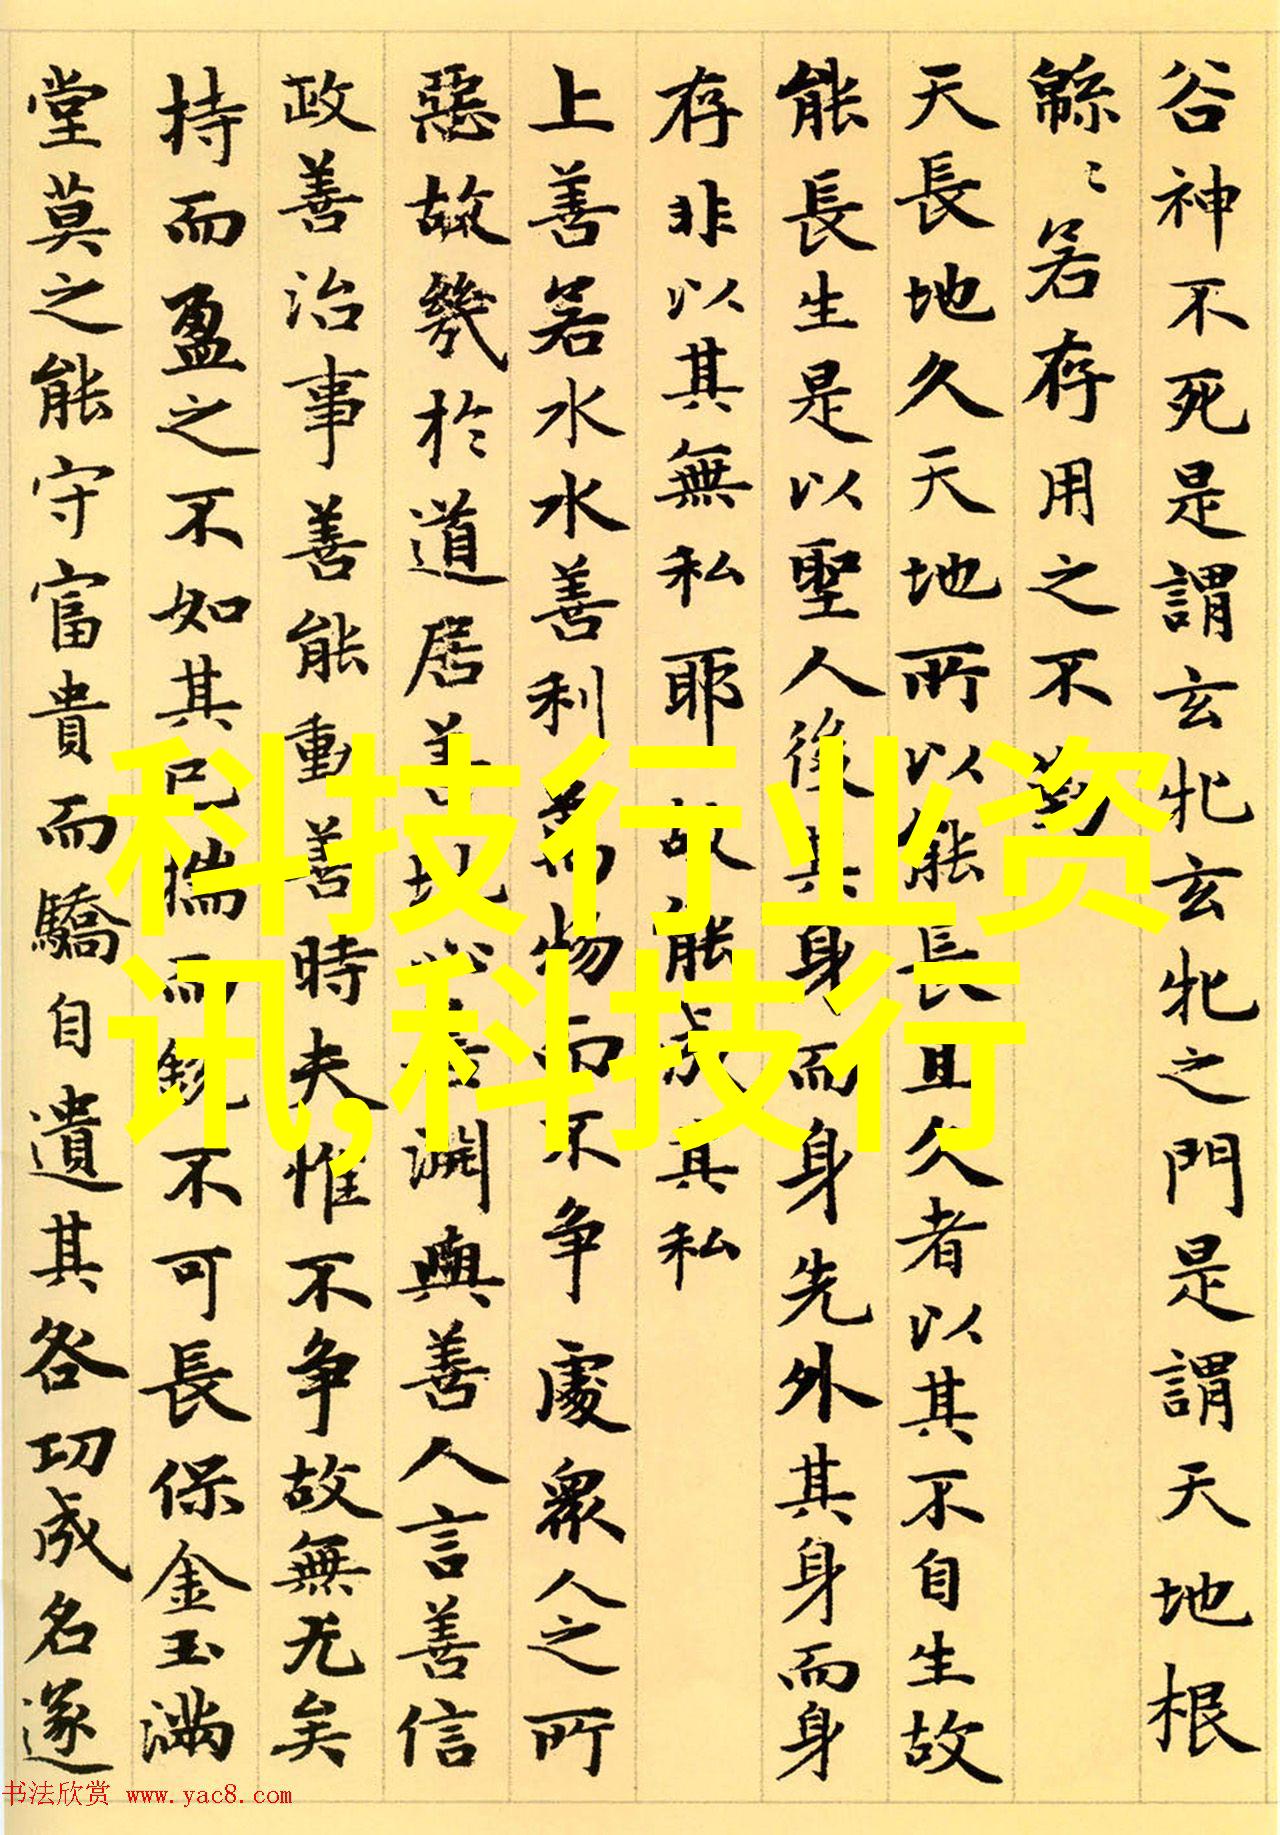 谷神不死是謂玄牝玄牝之門是謂天地根
緜〻若存用之不勤
天長地久天地所以能長且久者以其不自生故
能長生是以聖人後其身而身先外其身而身
存非以其無私耶故能成其私
上善若水水善利萬物而不争處衆人之所
惡故幾於道居善地心善淵與善人言善信
政善治事善能動善時夫惟不争故無尤矣
持而盈之不如其已揣而銳不可長保金玉滿
堂莫之能守富貴而驕自遺其咎功成名遂
科技行业资
讯,科技行
书法欣赏 www.yac8.com